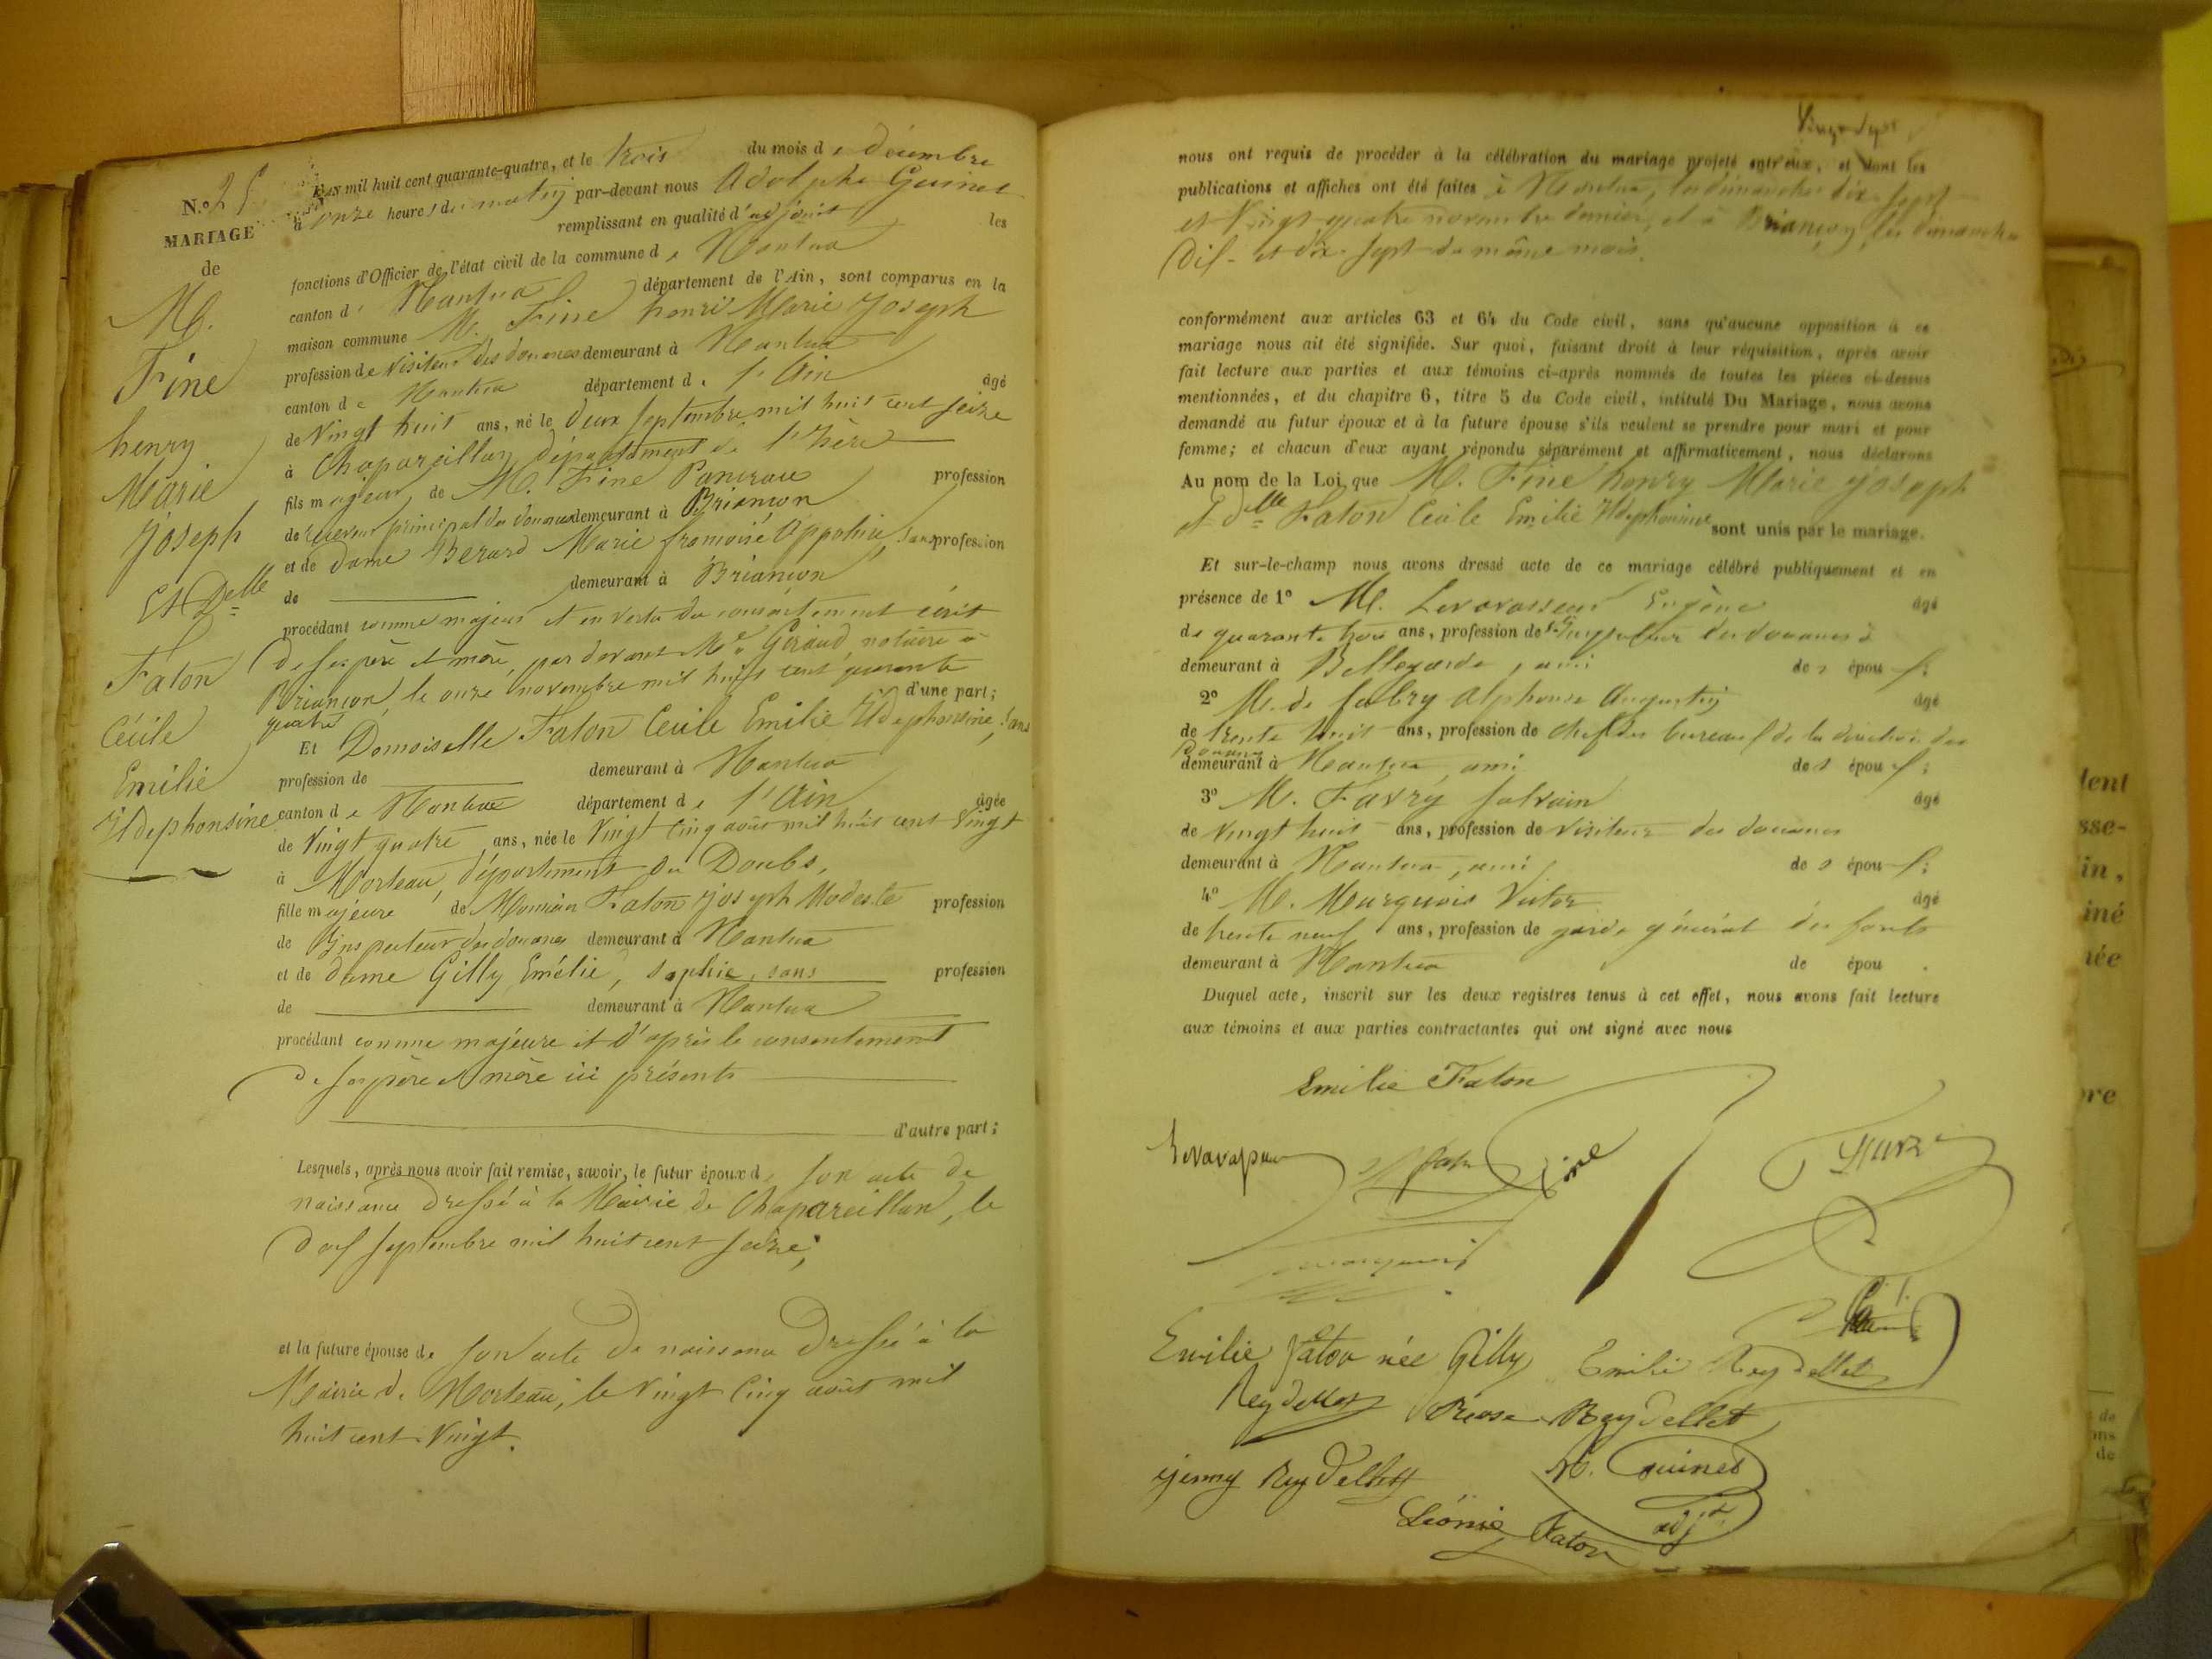 N.º 25
MARIAGE
de
M.
Fine
henry
Marie
Joseph
Et Delle
Faton
Cécile
Emilie
Ildephonsine
L'an mil huit cent quarante-quatre, et le trois du mois de décembre
à onze heures du matin par-devant nous Adolphe Guinet
remplissant en qualité d'adjoint les
fonctions d'Officier de l'état civil de la commune de Nantua
canton de Nantua département de l'Ain, sont comparus en la
maison commune M. Fine henri Marie Joseph
profession de Visiteur des douanes demeurant à Nantua
canton de Nantua département de l'Ain âgé
de Vingt huit ans, né le deux septembre mil huit cent seize
à Chapareillan département de l'Isère
fils majeur de M. Fine Pancrace profession
de receveur principal des douanes demeurant à Briançon
et de dame Berard Marie françoise Appolonie, sans profession
de demeurant à Briançon
procédant comme majeur et en vertu du consentement écrit
de ses père et mère, par devant Me Giraud, notaire à
Briançon, le onze novembre mil huit cent quarante
quatre d'une part;
Et Demoiselle Faton Cécile Emilie Ildephonsine, sans
profession de demeurant à Nantua
canton de Nantua département de l'Ain âgée
de Vingt quatre ans, née le Vingt cinq août mil huit cent Vingt
à Morteau, département du Doubs,
fille majeure de Monsieur Faton Joseph Modeste profession
de Inspecteur des douanes demeurant à Nantua
et de dame Gilly Emélie, Sophie, sans profession
de demeurant à Nantua
procédant comme majeure et d'après le consentement
de ses père et mère ici présents
d'autre part;
Lesquels, après nous avoir fait remise, savoir, le futur époux de son acte de
naissance dressé à la Mairie de Chapareillan, le
deux septembre mil huit cent seize;
et la future épouse de son acte de naissance dressé à la
Mairie de Morteau, le Vingt cinq août mil
huit cent Vingt.
nous ont requis de procéder à la célébration du mariage projeté entr'eux, et dont les
publications et affiches ont été faites à Nantua, les dimanches dix-sept
et Vingt quatre novembre dernier, et à Briançon, les dimanches
Dix et dix-sept du même mois.
conformément aux articles 63 et 64 du Code civil, sans qu'aucune opposition à ce
mariage nous ait été signifiée. Sur quoi, faisant droit à leur réquisition, après avoir
fait lecture aux parties et aux témoins ci-après nommés de toutes les pièces ci-dessus
mentionnées, et du chapitre 6, titre 5 du Code civil, intitulé Du Mariage, nous avons
demandé au futur époux et à la future épouse s'ils veulent se prendre pour mari et pour
femme; et chacun d'eux ayant répondu séparément et affirmativement, nous déclarons
Au nom de la Loi que M. Fine henry Marie Joseph
et Delle Faton Cécile Emilie Ildephonsine sont unis par le mariage.
Et sur-le-champ nous avons dressé acte de ce mariage célébré publiquement et en
présence de 1º M. Levavasseur Eugène âgé
de quarante trois ans, profession de Inspecteur des douanes à
demeurant à Bellegarde, ami des époux;
2º M. de fabry Alphonse Augustin âgé
de trente huit ans, profession de chef des bureaux de la direction des
douanes
demeurant à Nantua, ami des époux;
3º M. Favry Silvain âgé
de Vingt huit ans, profession de Visiteur des douanes
demeurant à Nantua, ami des époux;
4º M. Marquois Victor âgé
de trente neuf ans, profession de garde général des forêts
demeurant à Nantua de épou .
Duquel acte, inscrit sur les deux registres tenus à cet effet, nous avons fait lecture
aux témoins et aux parties contractantes qui ont signé avec nous
Emilie Faton
Levavasseur
Fine
Emilie Faton née Gilly
Emilie Reydellet
Reydellet
Reydellet
Jenny Reydellet
A. Guinet
adjt
Léonie Faton